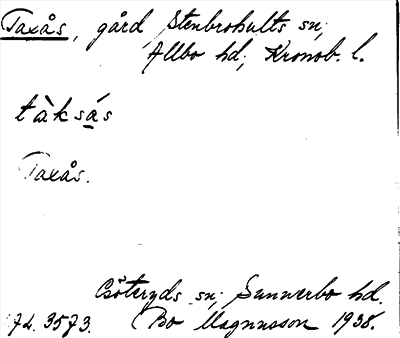 Taxås, gård, Stenbrohults sn;
Allbo hd; Kronob. l.
tàksás
Taxås.
Göteryds sn; Sunnerbo hd.
74. 3573. Bo Magnusson 1938.